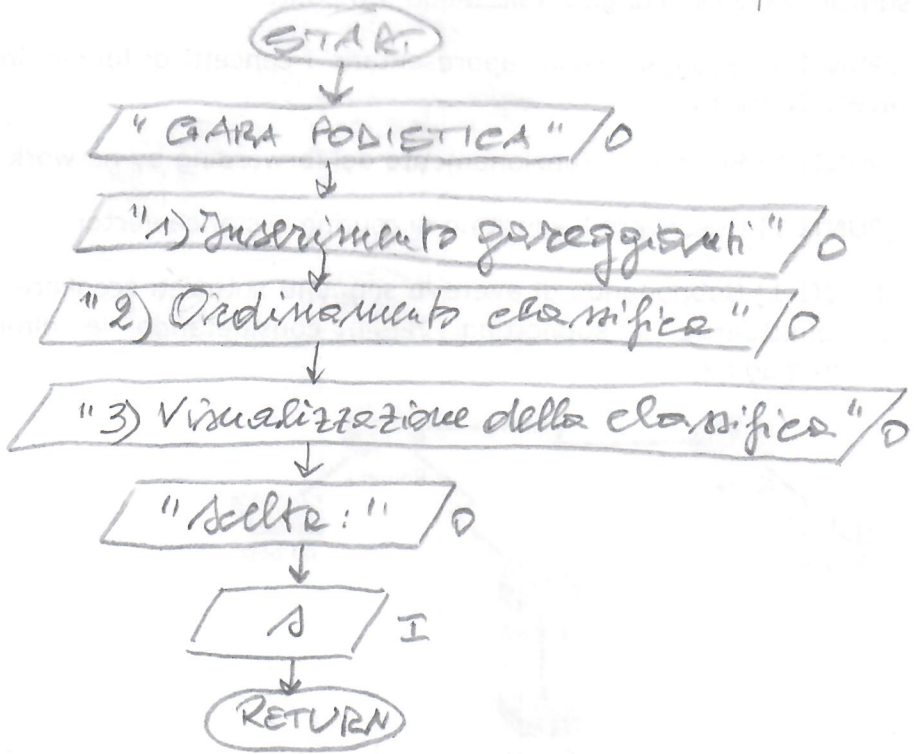 START
"GARA PODISTICA" O
"1) Inserimento gareggianti" O
"2) Ordinamento classifica" O
"3) Visualizzazione della classifica" O
"Scelta:" O
s I
RETURN